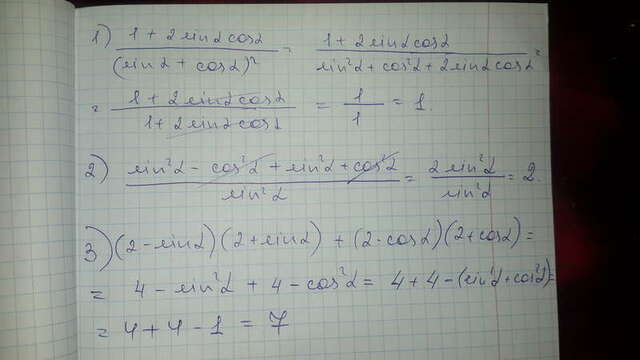 1) (1 + 2 sinα cosα)/(sinα + cosα)² = (1 + 2 sinα cosα)/(sin²α + cos²α + 2 sinα cosα) =
= (1 + 2 sinα cosα)/(1 + 2 sinα cosα) = 1/1 = 1.
2) (sin²α - cos²α + sin²α + cos²α)/(sin²α) = (2 sin²α)/(sin²α) = 2.
3) (2 - sinα)(2 + sinα) + (2 - cosα)(2 + cosα) =
= 4 - sin²α + 4 - cos²α = 4 + 4 - (sin²α + cos²α) =
= 4 + 4 - 1 = 7